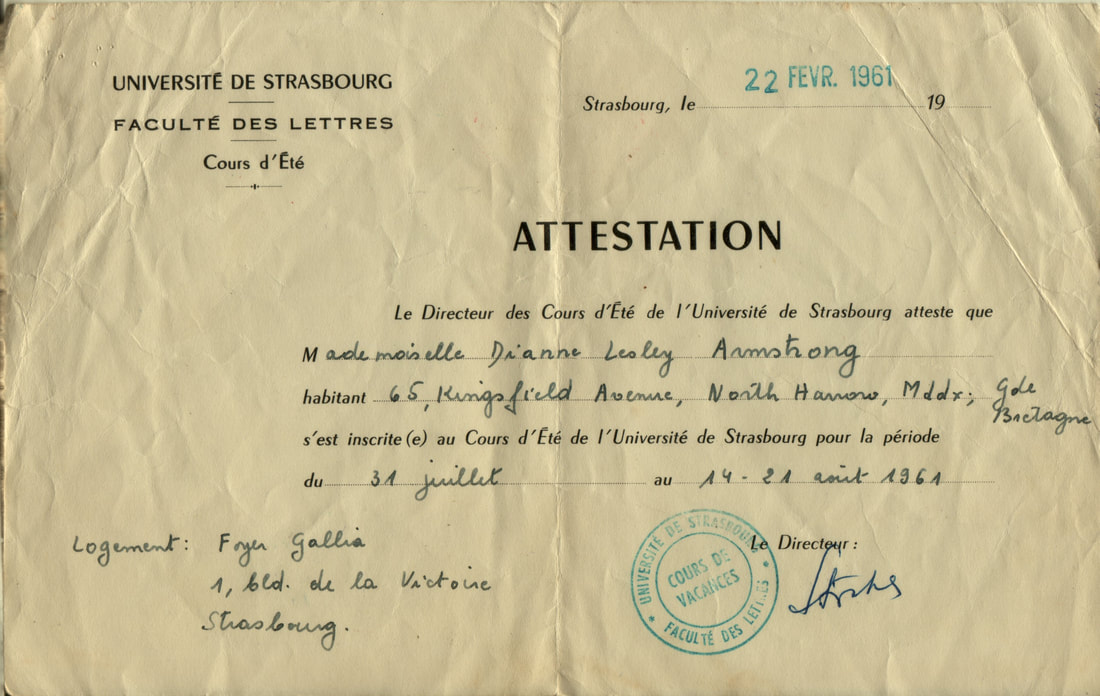 UNIVERSITÉ DE STRASBOURG
FACULTÉ DES LETTRES
Cours d'Été
22 FEVR. 1961
Strasbourg, le 19
ATTESTATION
Le Directeur des Cours d'Été de l'Université de Strasbourg atteste que
Mademoiselle Dianne Lesley Armstrong
habitant 65, Kingsfield Avenue, North Harrow, Mddx; Gde
Bretagne
s'est inscrite(e) au Cours d'Été de l'Université de Strasbourg pour la période
du 31 juillet au 14-21 août 1961
Logement: Foyer Gallia
1, bld. de la Victoire
Strasbourg.
Le Directeur:
* UNIVERSITÉ DE STRASBOURG *
FACULTÉ DES LETTRES
COURS DE
VACANCES